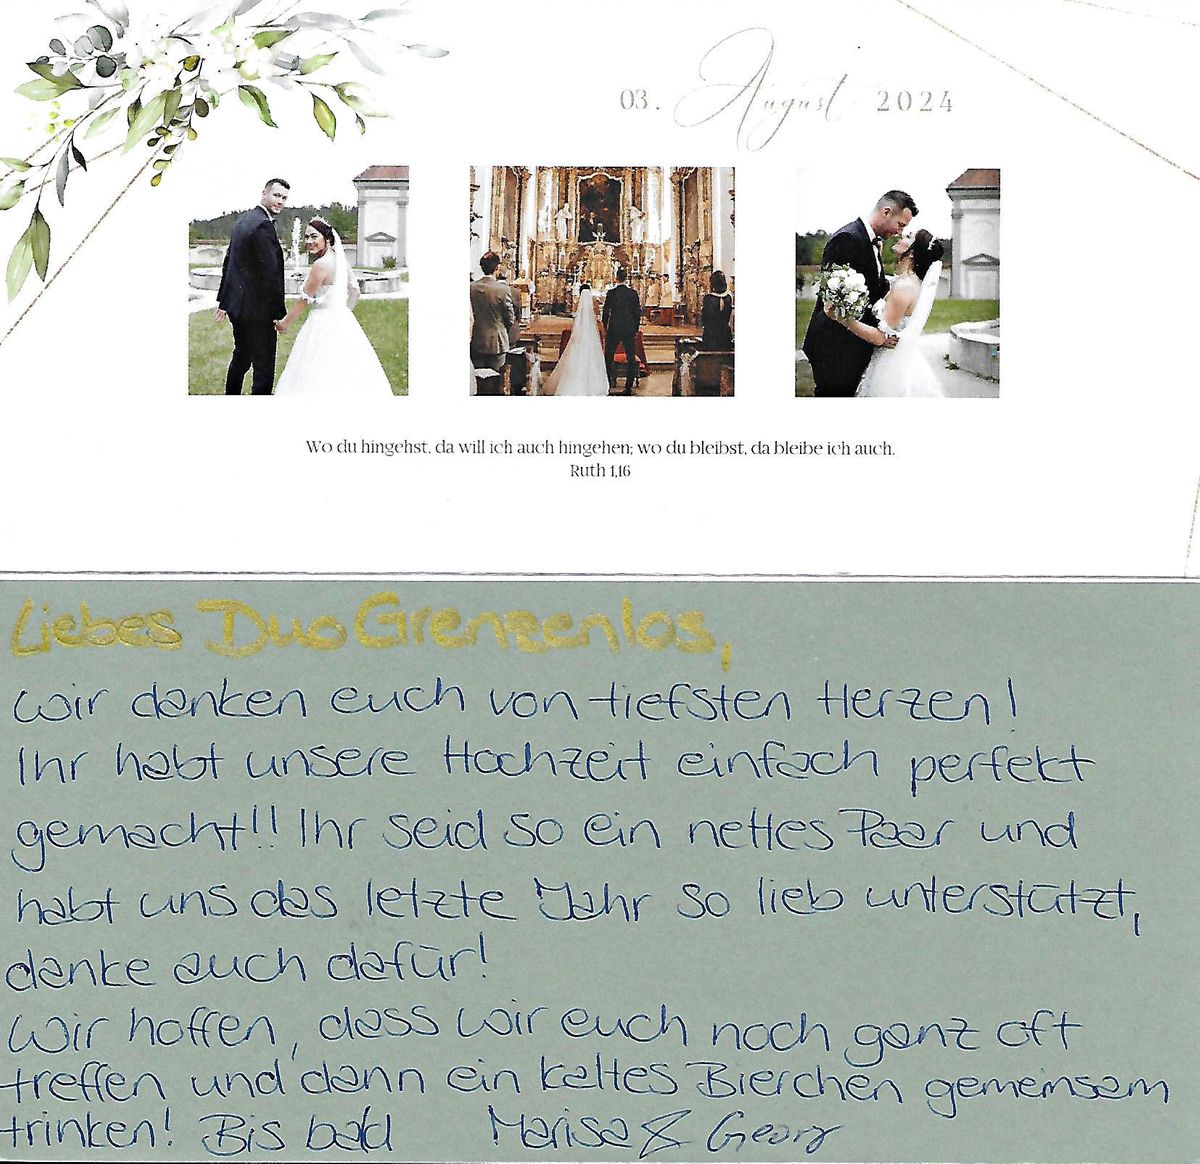 03. August 2024
Wo du hingehst, da will ich auch hingehen; wo du bleibst, da bleibe ich auch.
Ruth 1,16
Liebes Duo Grenzenlos,
Wir danken euch von tiefsten Herzen!
Ihr habt unsere Hochzeit einfach perfekt
gemacht!! Ihr seid so ein nettes Paar und
habt uns das letzte Jahr so lieb unterstützt,
danke auch dafür!
Wir hoffen, dass wir euch noch ganz oft
treffen und dann ein kaltes Bierchen gemeinsam
trinken! Bis bald Marisa & Georg